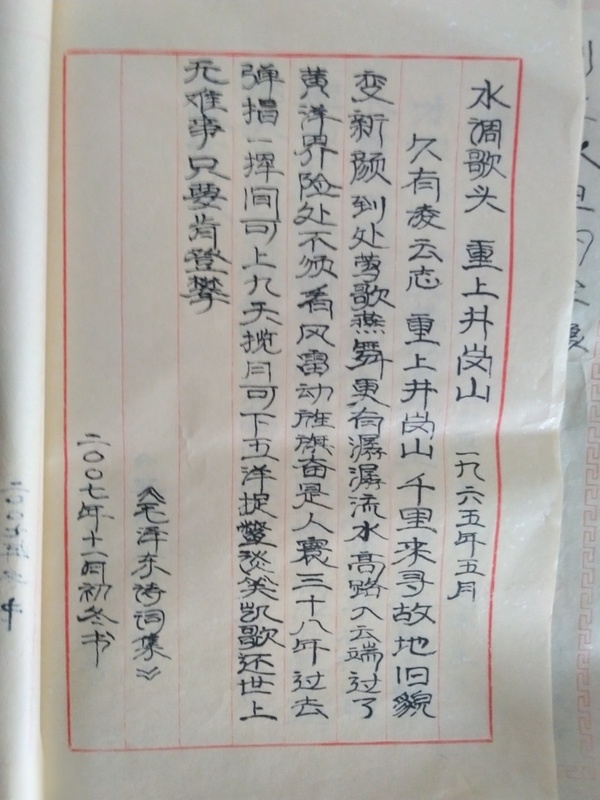 水调歌头 重上井岗山 一九六五年五月
久有凌云志 重上井岗山千里来寻故地旧貌
变新颜到处莺歌燕舞更有潺潺流水高路入云端过了
黄洋界险处不须看风雷动旌旗奋是人寰三十八年过去
弹指一挥间可上九天揽月可下五洋捉鳖谈笑凯歌还世上
无难事只要肯登攀
《毛泽东诗词集》
二〇〇七年十一月初冬书